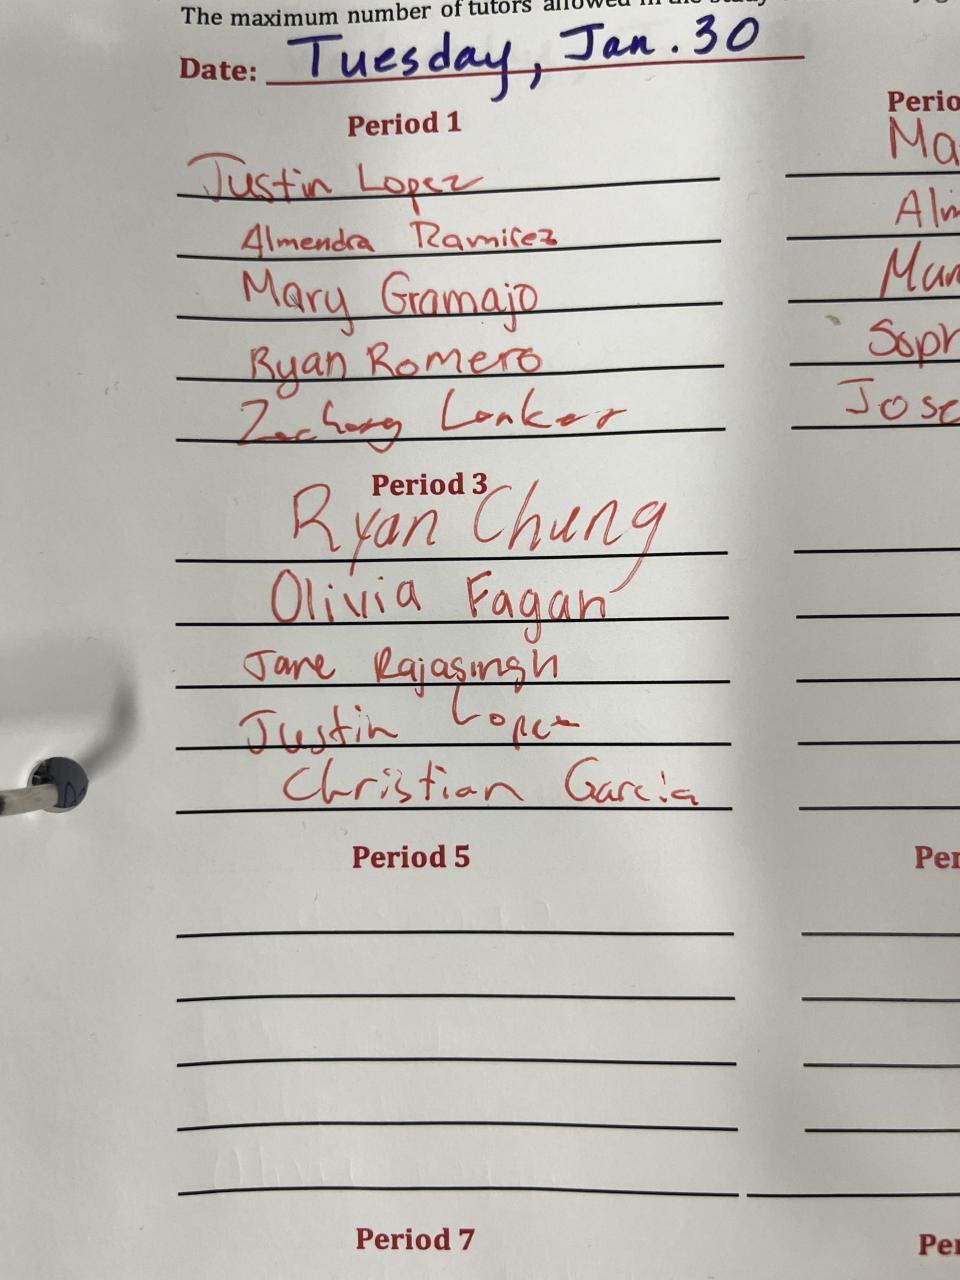 The maximum number of tutors allowed in the study
Date: Tuesday, Jan. 30
Period 1
Justin Lopez
Almendra Ramirez
Mary Gramajo
Ryan Romero
Zachary
Period 3
Ryan Chung
Olivia Fagan
Jane Rajasingh
Justin Lopez
Christian Garcia
Period 5
Period 7
Perio
Ma
Alm
Mar
Soph
Jose
Per
Per